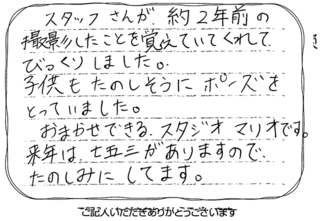 スタッフさんが、約2年前の
撮影したことを覚えていてくれて
びっくりしました。
子供もたのしそうにポーズを
とっていました。
おまかせできるスタジオマリオです。
来年は、七五三がありますので、
たのしみにしてます。
ご記入いただきありがとうございます